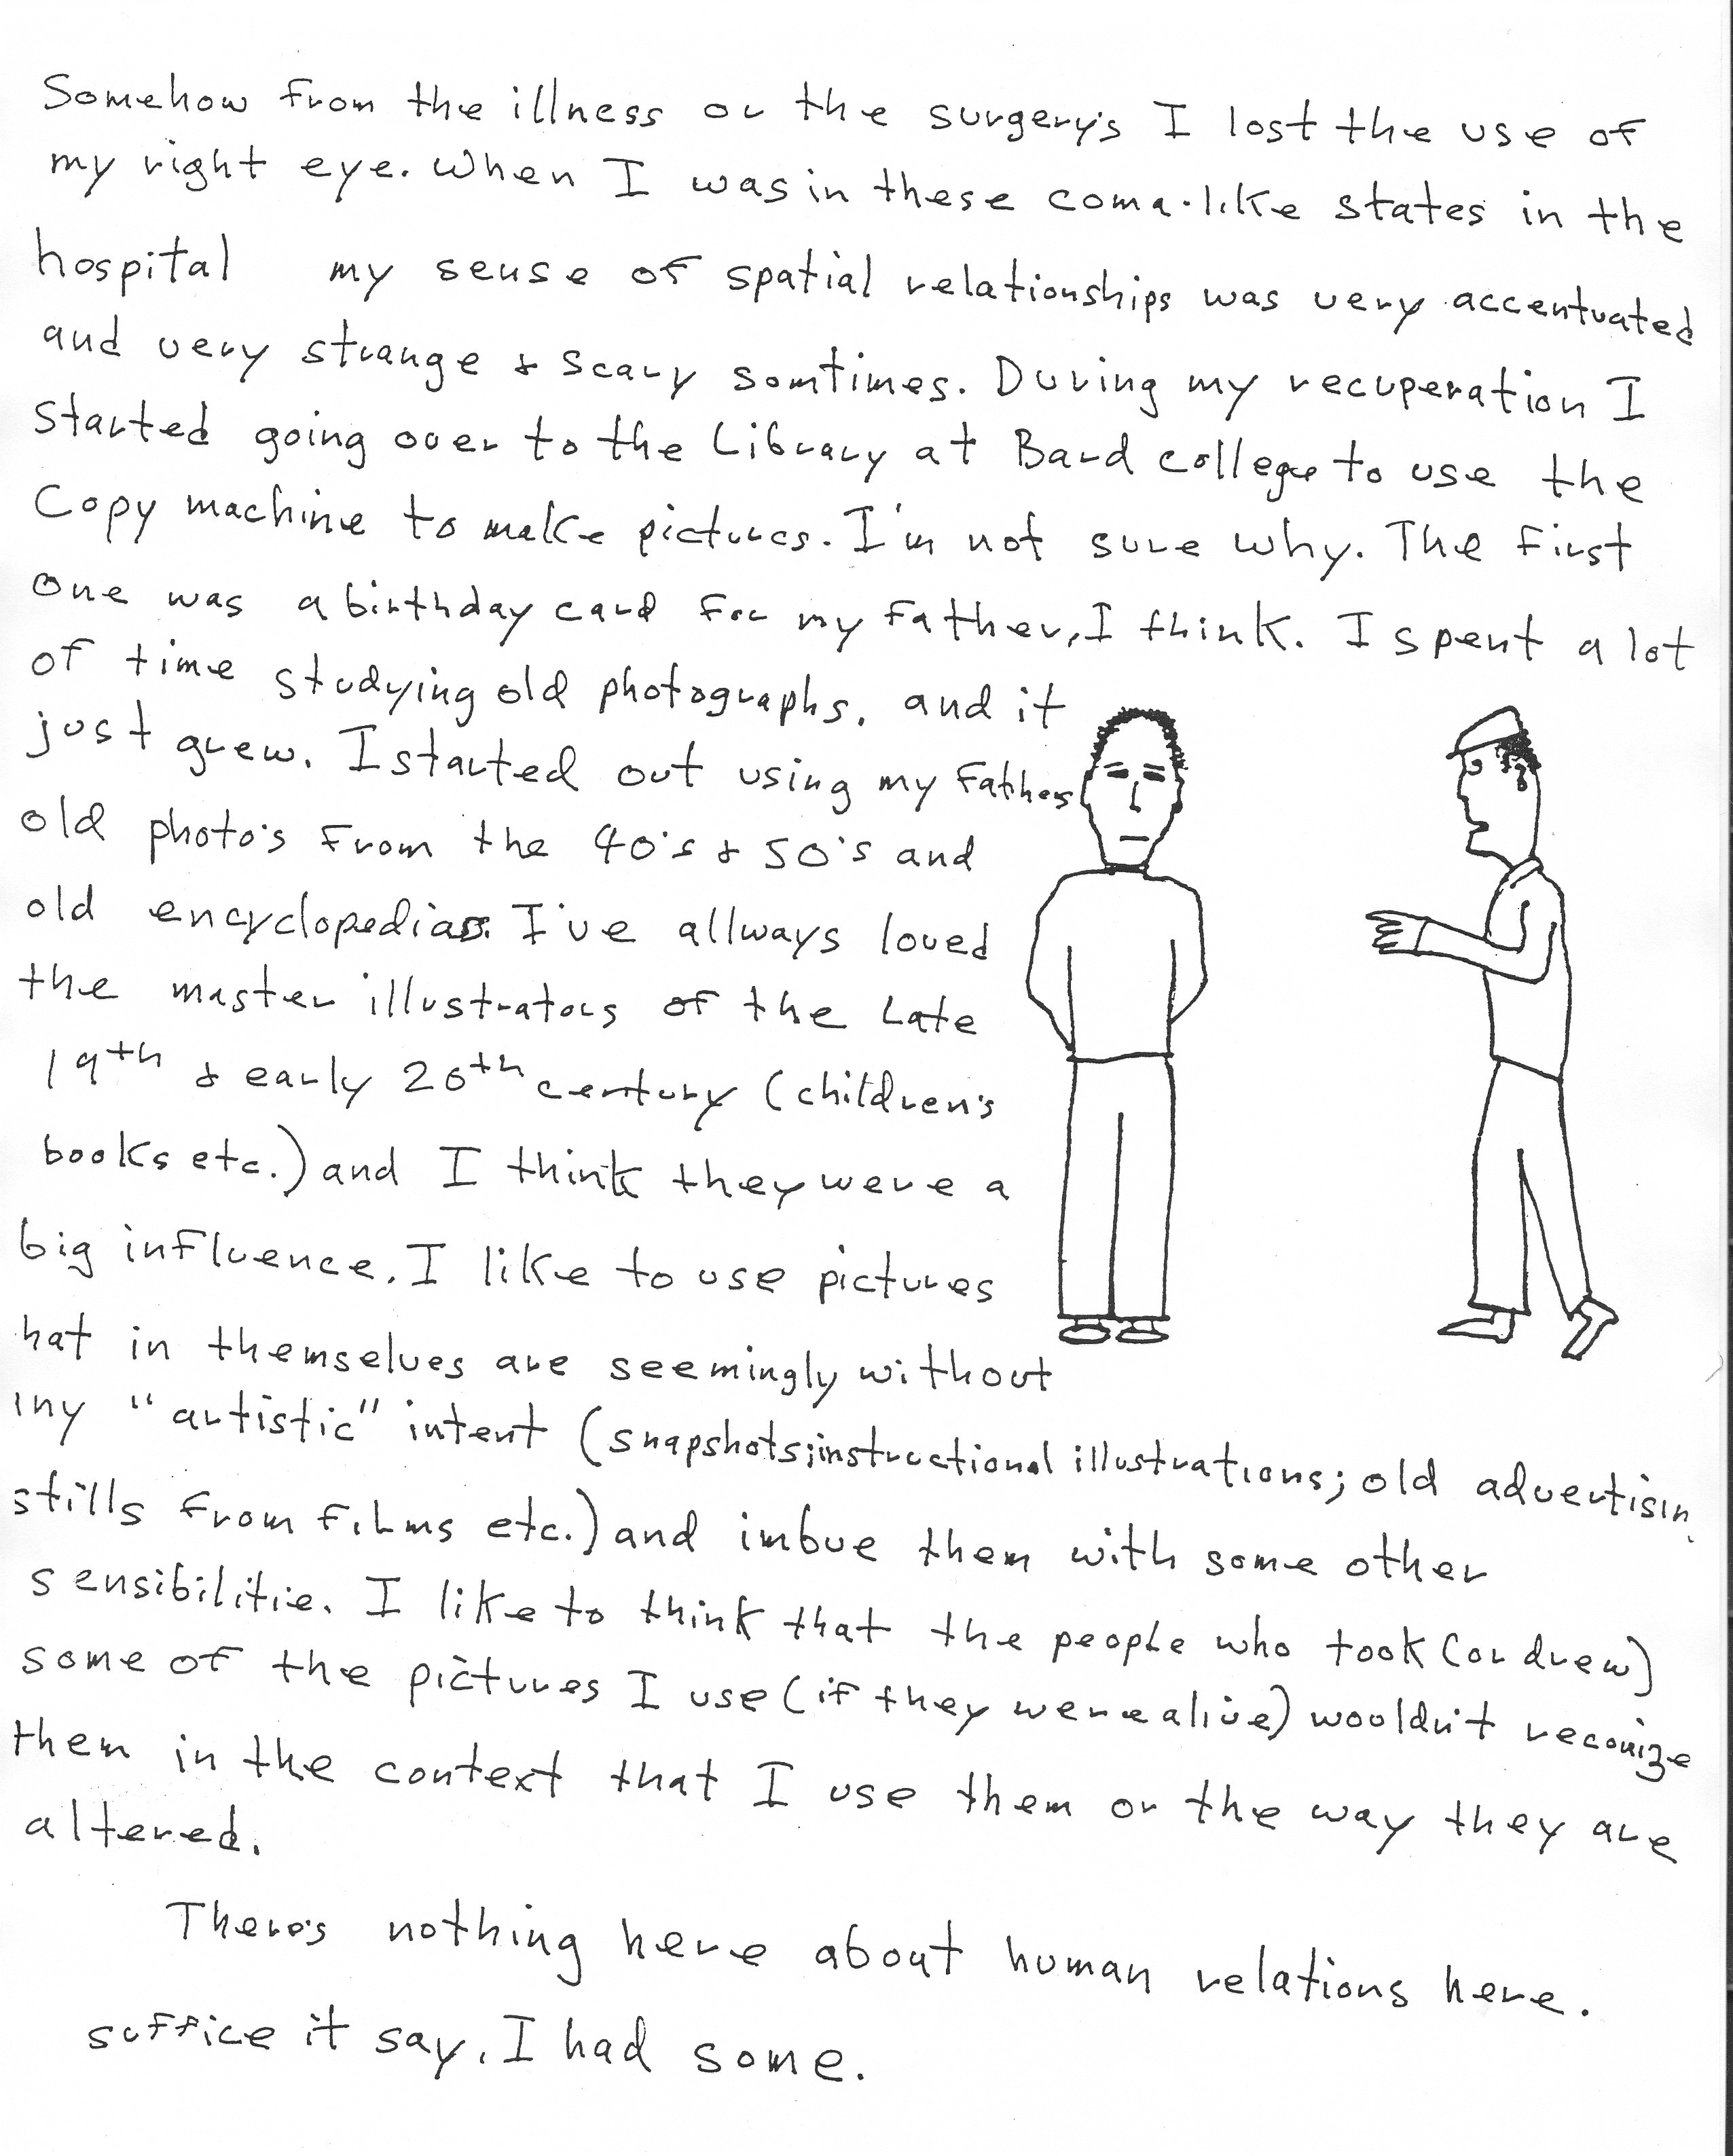 Somehow from the illness or the surgery's I lost the use of
my right eye. When I was in these coma-like states in the
hospital my sense of spatial relationships was very accentuated
and very strange & scary somtimes. During my recuperation I
started going over to the Library at Bard college to use the
Copy machine to make pictures. I'm not sure why. The first
one was a birthday card for my father, I think. I spent a lot
of time studying old photographs, and it
just grew. I started out using my Fathers
old photo's from the 40's & 50's and
old encyclopedias. I've allways loved
the master illustrators of the Late
19th & early 20th century (children's
books etc.) and I think they were a
big influence. I like to use pictures
hat in themselves are seemingly without
iny "artistic" intent (snapshots; instructional illustrations; old advertisin
stills from films etc.) and imbue them with some other
sensibilitie. I like to think that the people who took (or drew)
some of the pictures I use (if they were alive) wouldn't reconize
them in the context that I use them or the way they are
altered.
There's nothing here about human relations here.
suffice it say, I had some.